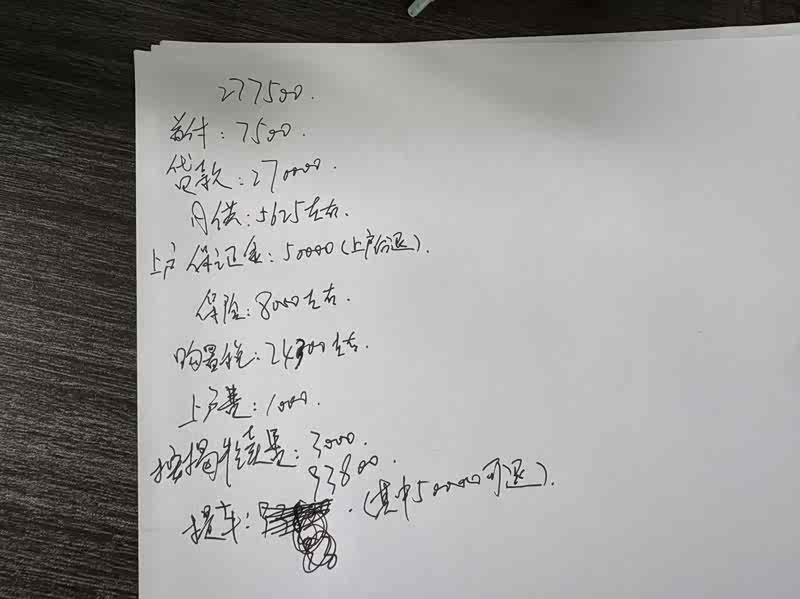 277500.
首付：7500.
贷款：270000.
月供：5625左右.
上户保证金：50000（上户后退）.
保险：8000左右.
购置税：24300左右.
上户费：1000.
按揭手续费：3000.
93800.
提车：.（其中50000可退）.